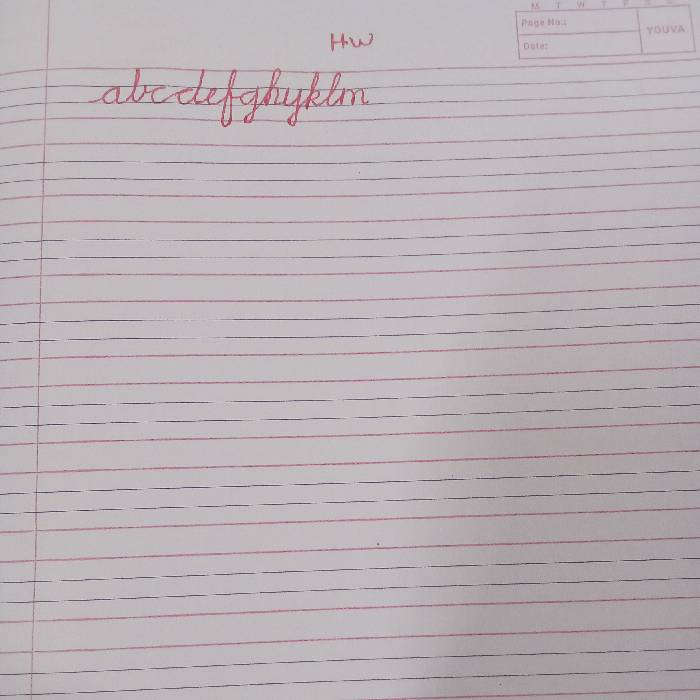 M T W T F S S
Page No.:
YOUVA
Date:
HW
abcdefghijklm